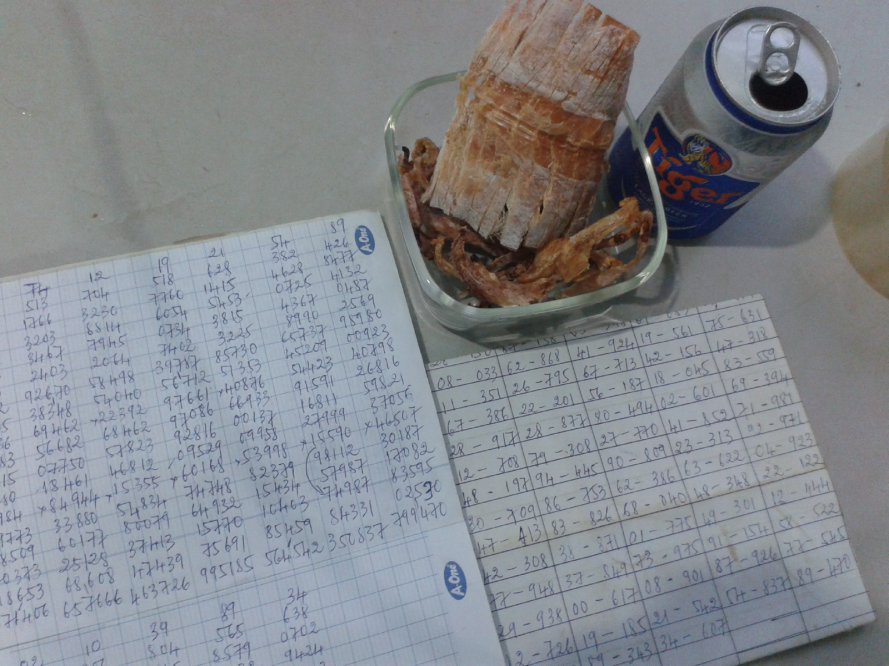 74 12 19 21 54 89
513 704 518 628 382 426
1766 3230 7760 1415 4628 8477
3203 8814 6054 5453 0725 4132
3467 7945 0734 3815 4367 0487
2403 2064 7462 3225 8990 2569
92670 58498 39787 85730 65737 95980
38348 54040 56712 51353 45209 00923
69462 22392 97661 40876 54423 40793
56682 68462 97086 66933 91591 26816
07750 57823 92816 00137 16811 59821
18461 46812 09529 09958 27999 37056
84944 15355 60168 53998 15590 46507
33880 54834 74748 82379 98112 30187
60177 80079 64932 15434 57987 17082
25128 37413 15770 10463 74987 83595
68608 47439 75691 85459 84331 02530
657666 463726 995185 564542 350837 799470
10 39 89 34
804 565 638
8579 0702
9424
A-One
A-One
Tiger
08 - 033 62-868 41-924 19-561 75-631
11-351 26-795 67-713 42-156 47-318
67-386 22-201 56-187 18-045 83-559
28-917 28-877 40-494 02-601 69-394
12-708 79-308 27-770 41-852
48-197 94-445 90-809 23-313
709 86-753 62-386 63-622 04-923
47-413 83-826 68-040 48-348 22-122
42-308 31-371 01-775 49-301 12-444
77-948 37-849 73-975 91-154 58-522
29-938 00-617 08-901 87-926 77-548
726 19-185 21-542 54-837 89-470
343 34-607